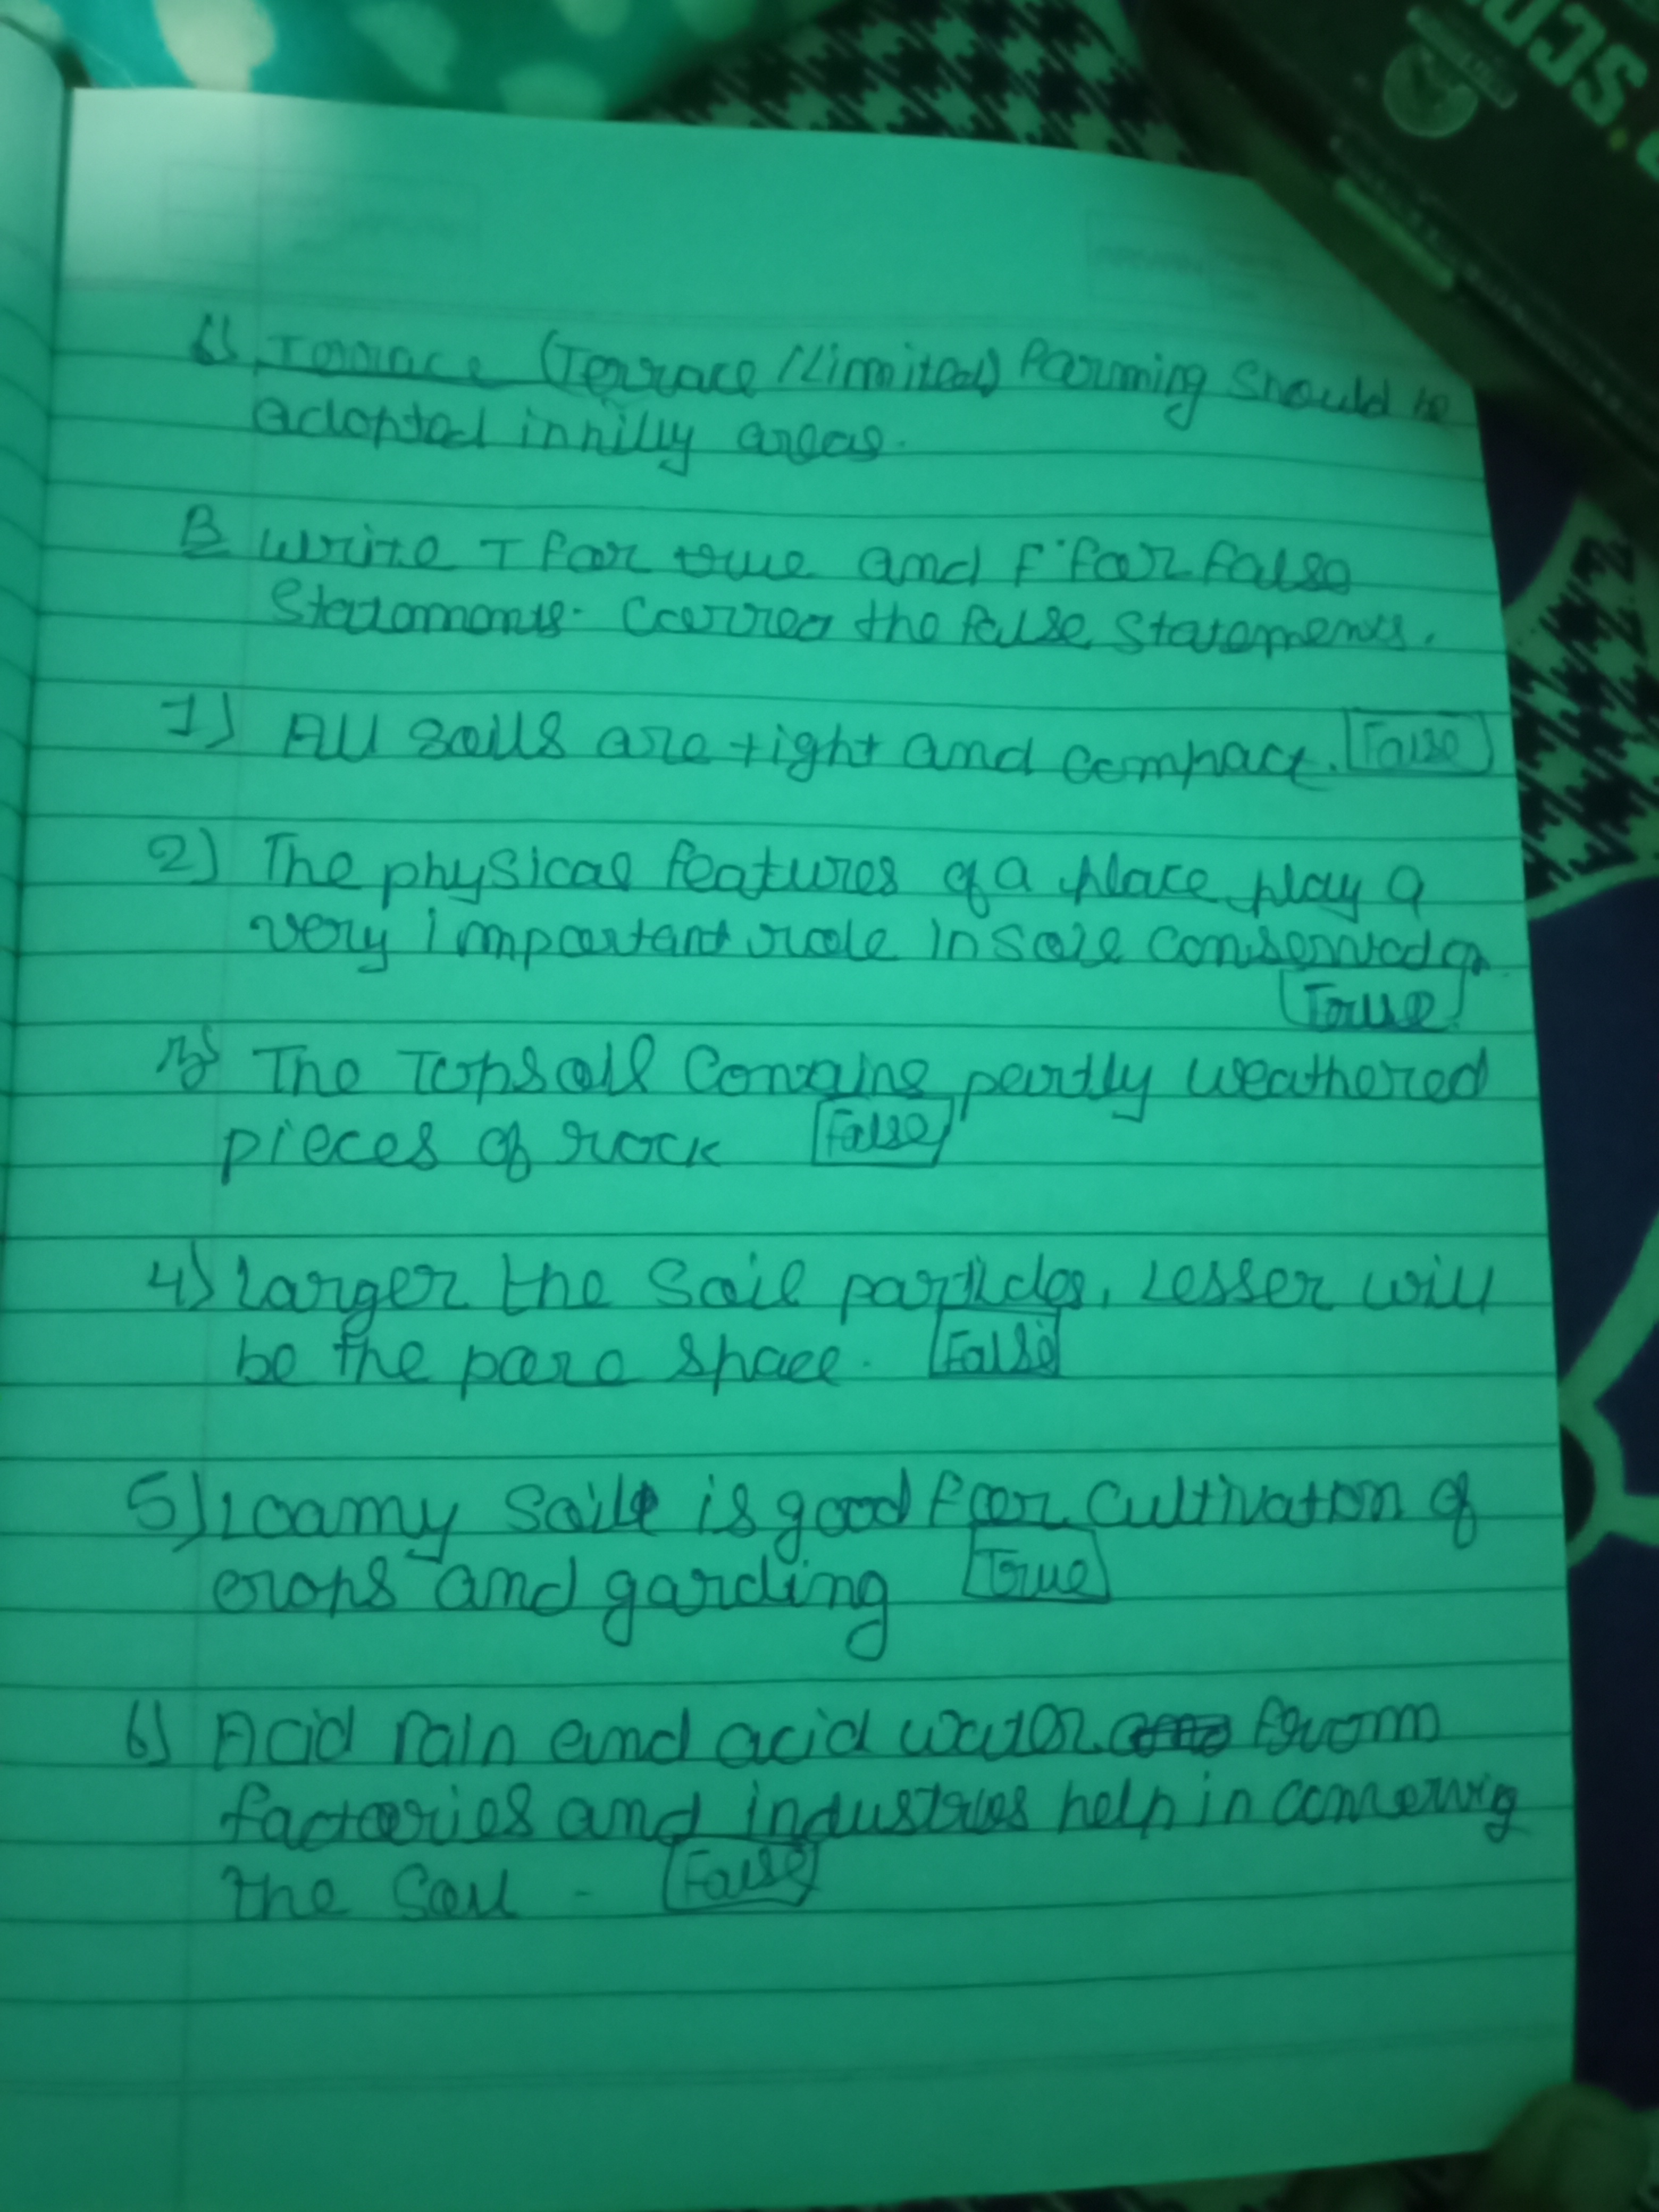 6) Terrace (Terrace / Limited) farming should be
adopted in hilly areas.
B Write T for true and F for false
Statements. Correct the false statements.
1) All soils are tight and compact. False
2) The physical features of a place play a
very important role in soil conservation
True
3) The Topsoil Contains partly weathered
pieces of rock False
4) Larger the Soil particles, Lesser will
be the pore space. False
5) Loamy Soil is good for Cultivation of
crops and garding True
6) Acid rain and acid water from
factories and industries help in conserving
the Soil - False